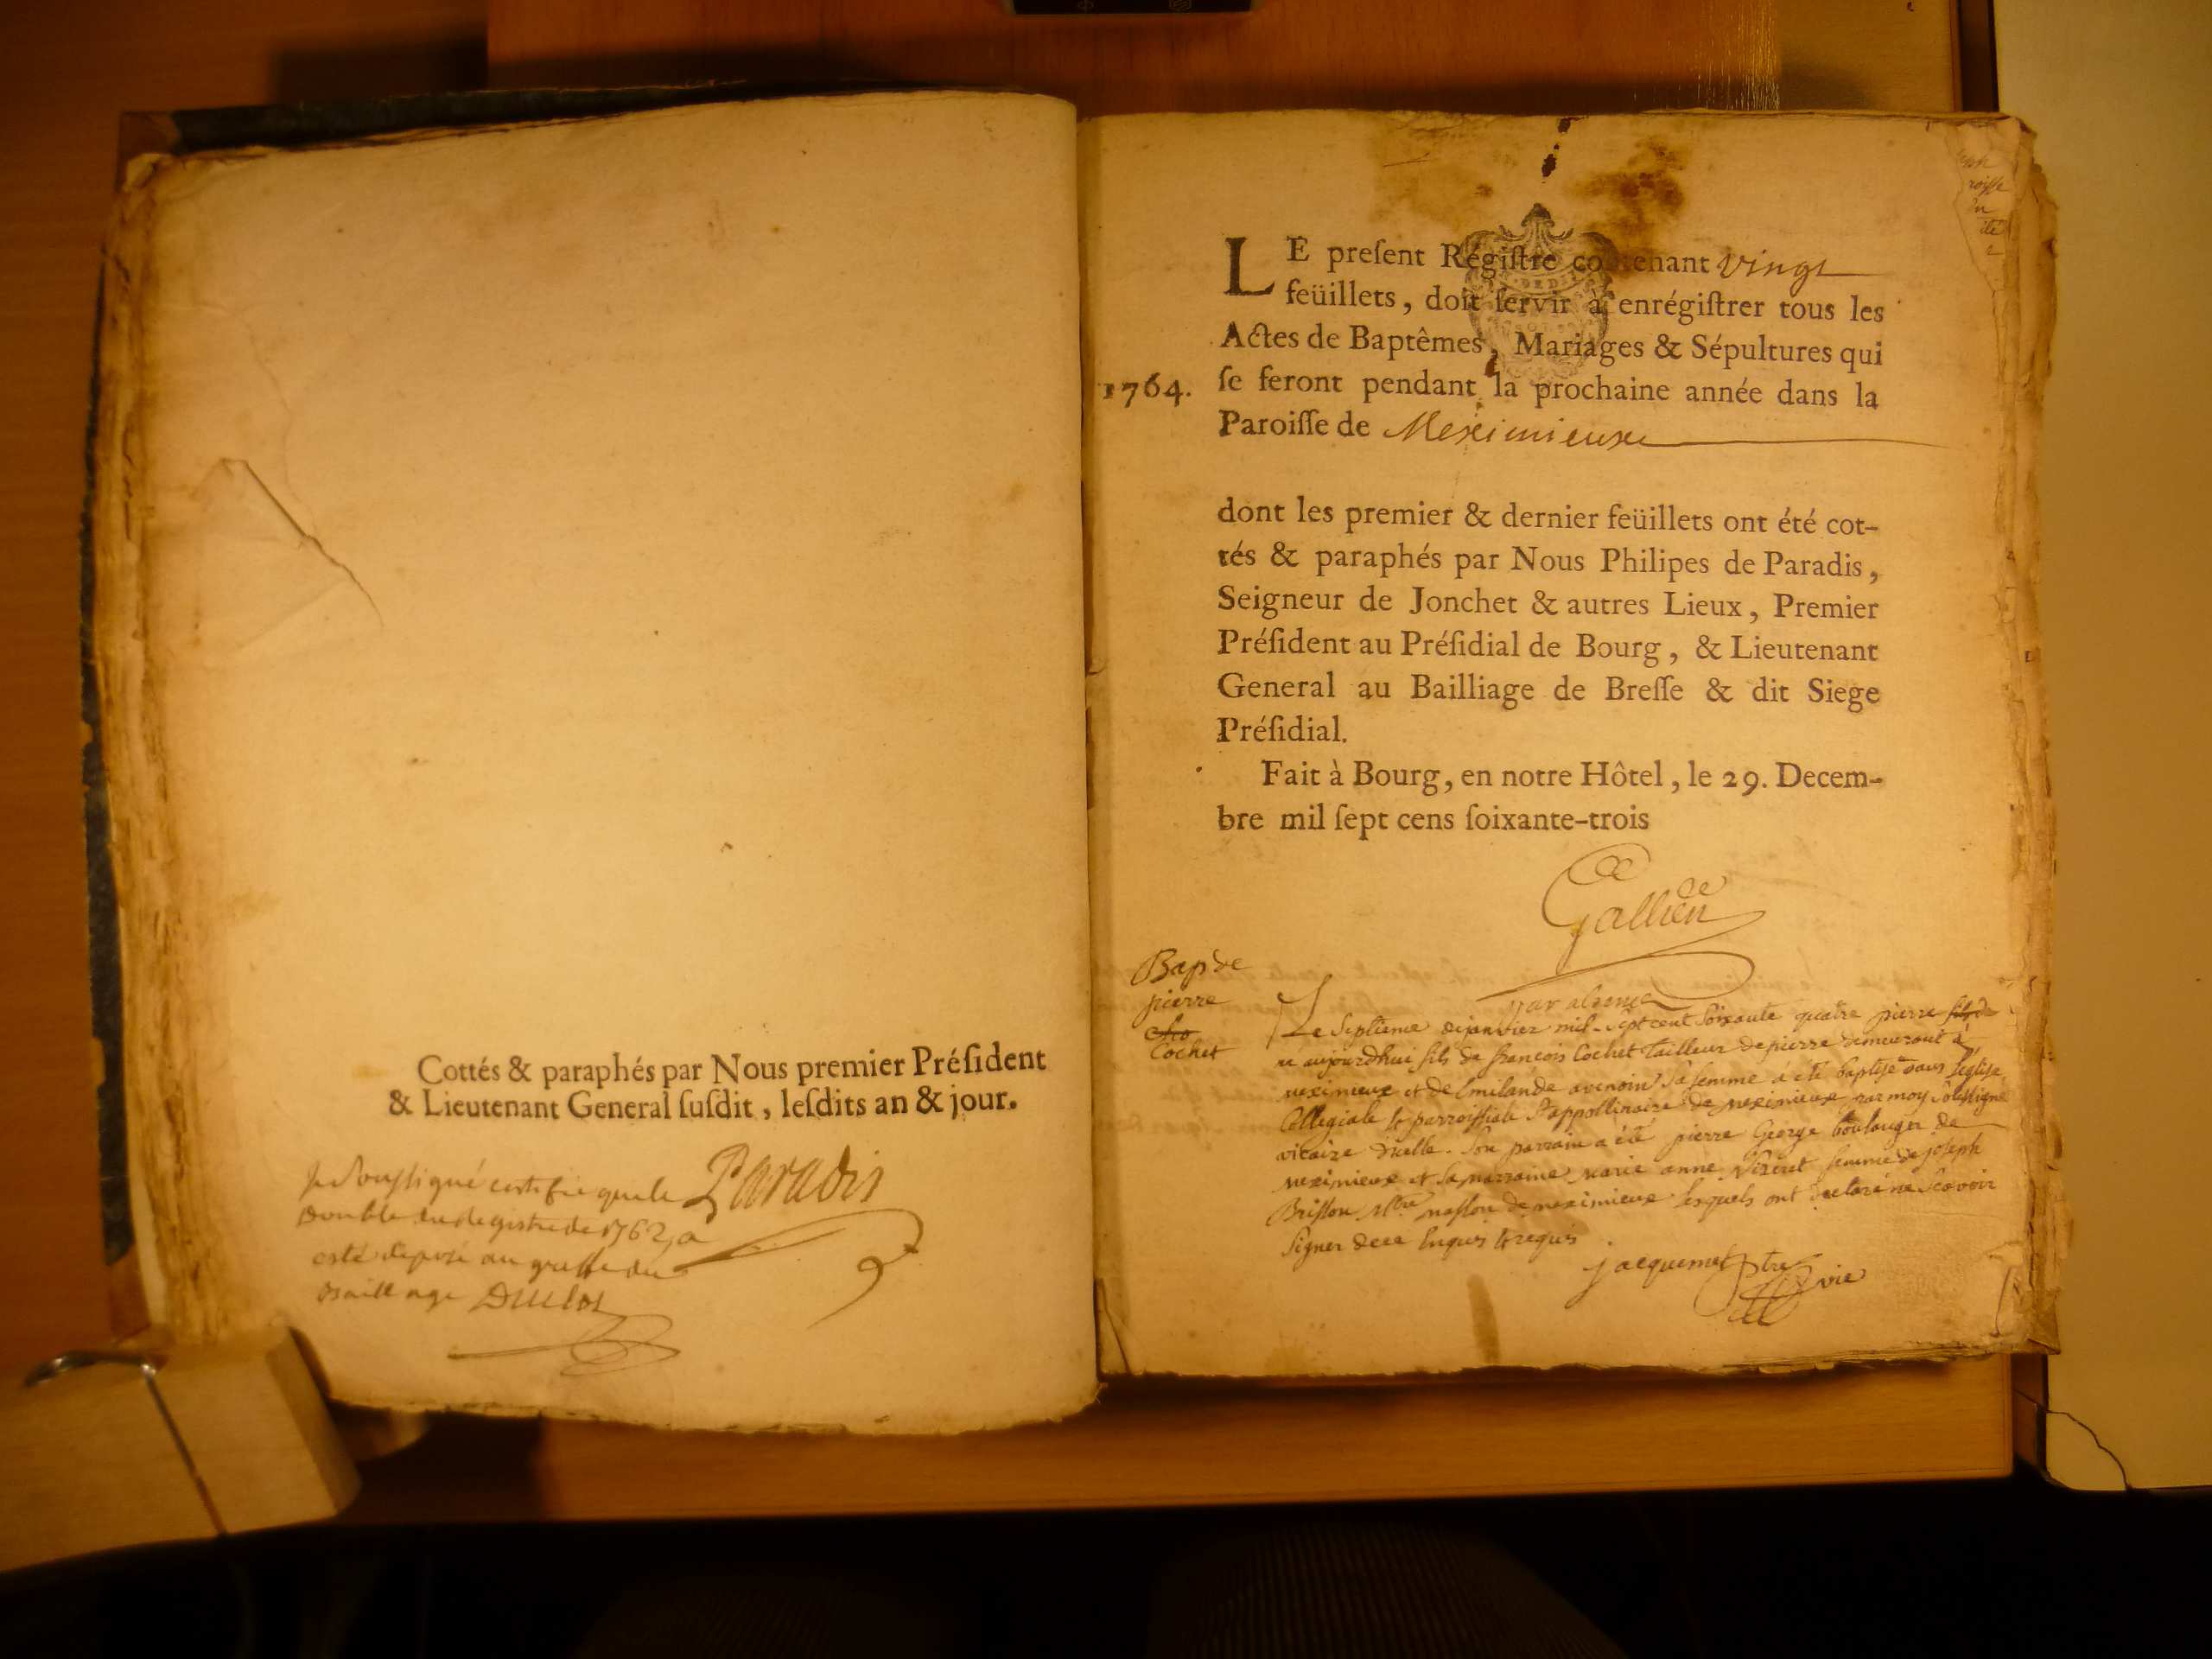 Cottés & paraphés par Nous premier Préſident
& Lieutenant General ſuſdit, leſdits an & jour.
Paradis
Je Soussigné certifie que le
Double du Registre de 1762, a
esté deposé au greffe du
Bailliage Duclos
LE preſent Régiſtre contenant vingt
feüillets, doit ſervir à enrégiſtrer tous les
Actes de Baptêmes, Mariages & Sépultures qui
1764. ſe feront pendant la prochaine année dans la
Paroiſſe de Meximieux
dont les premier & dernier feüillets ont été cot-
tés & paraphés par Nous Philipes de Paradis,
Seigneur de Jonchet & autres Lieux, Premier
Préſident au Préſidial de Bourg, & Lieutenant
General au Bailliage de Breſſe & dit Siege
Préſidial.
Fait à Bourg, en notre Hôtel, le 29. Decem-
bre mil ſept cens ſoixante-trois
Gallien
par absence
Bap de
pierre
cho
Cochet
Le Septieme de janvier mil-sept cent Soixante quatre pierre fils de
né aujourdhui fils de françois Cochet Tailleur de pierre demeurant à
meximieux et de Emilande avenoin Sa femme a été baptisé dans léglise
Collegiale et parroissiale St appollinaire de meximieux par moy Soussigné
vicaire dicelle. Son parrain a été pierre George boulanger de
meximieux et Sa marraine marie anne femme de joseph
Brisson Mtre masson de meximieux lesquels ont declaré ne Scavoir
Signer de ce Enquis et requis
jacquemet ptre vic